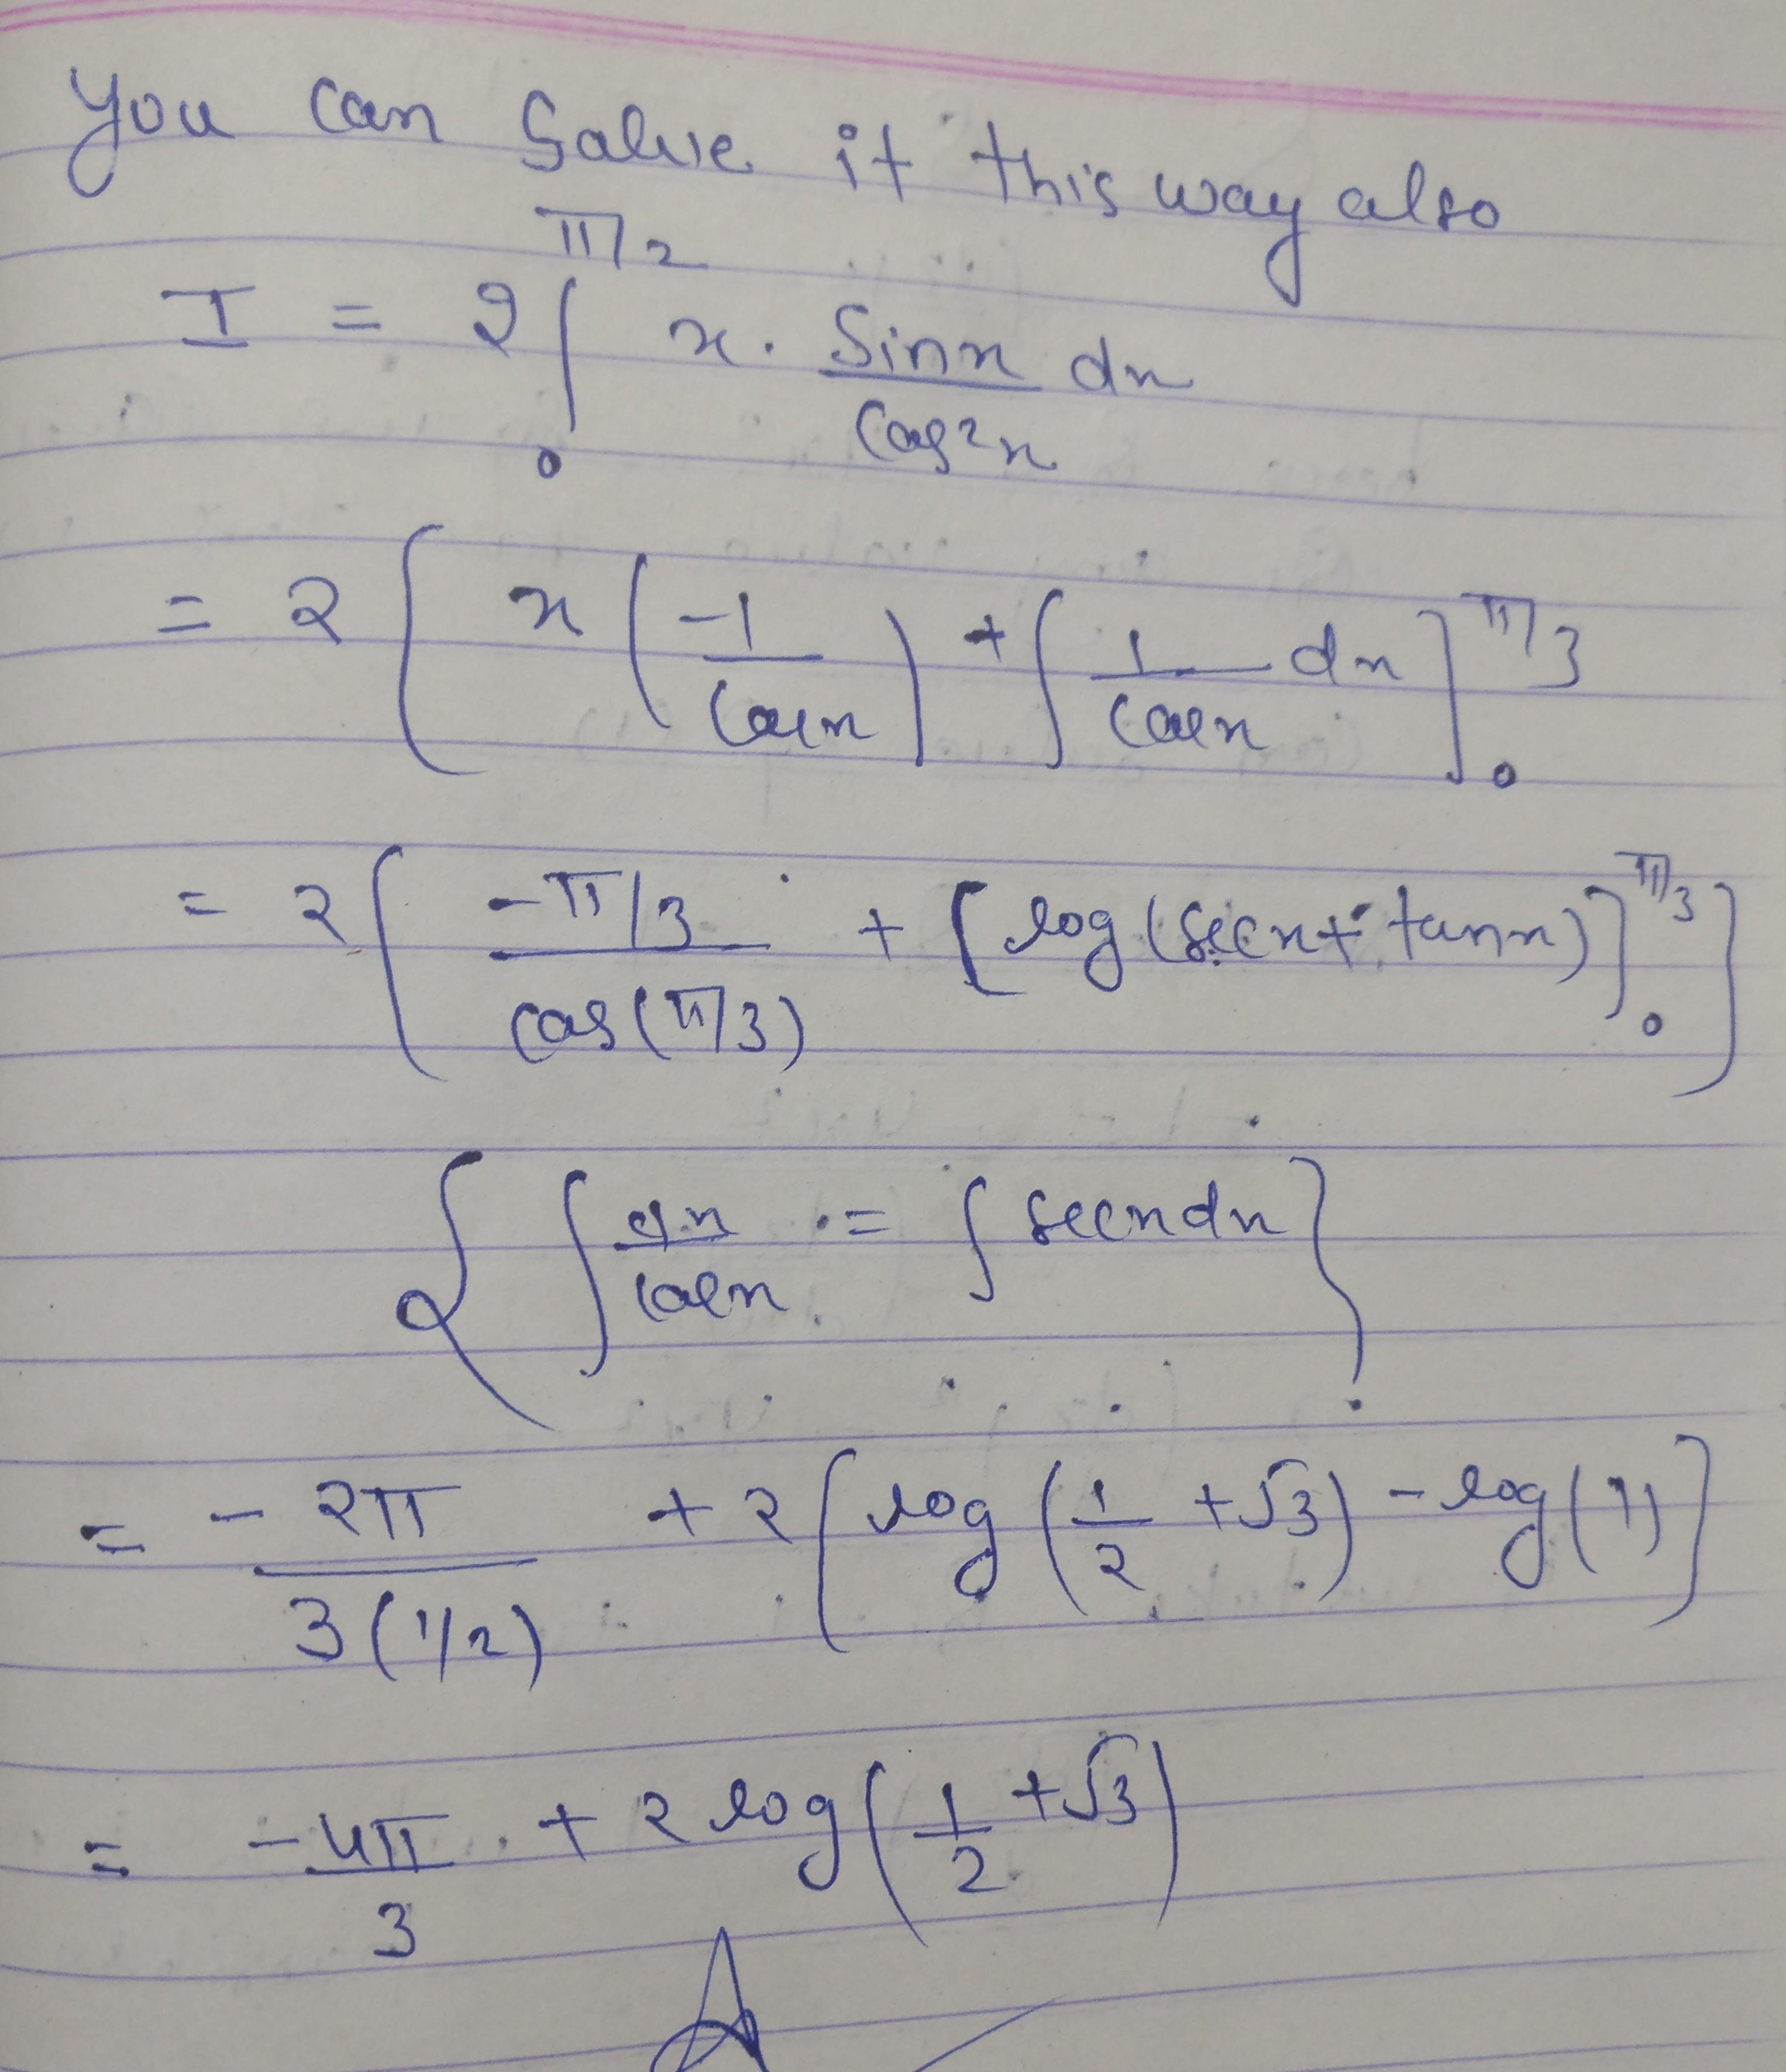 You can Solve it this way also
I = 2 ∫₀^{π/2} x · Sinx/Cos²x dx
= 2 [ x (-1/Cosx) + ∫ 1/Cosx dx ]₀^{π/3}
= 2 [ -π/3 / cos(π/3) + [log(secx + tanx)]₀^{π/3} ]
{ ∫ dx/cosx = ∫ secx dx }
= -2π/3(1/2) + 2 [ log(1/2 + √3) - log(1) ]
= -4π/3 + 2 log(1/2 + √3)